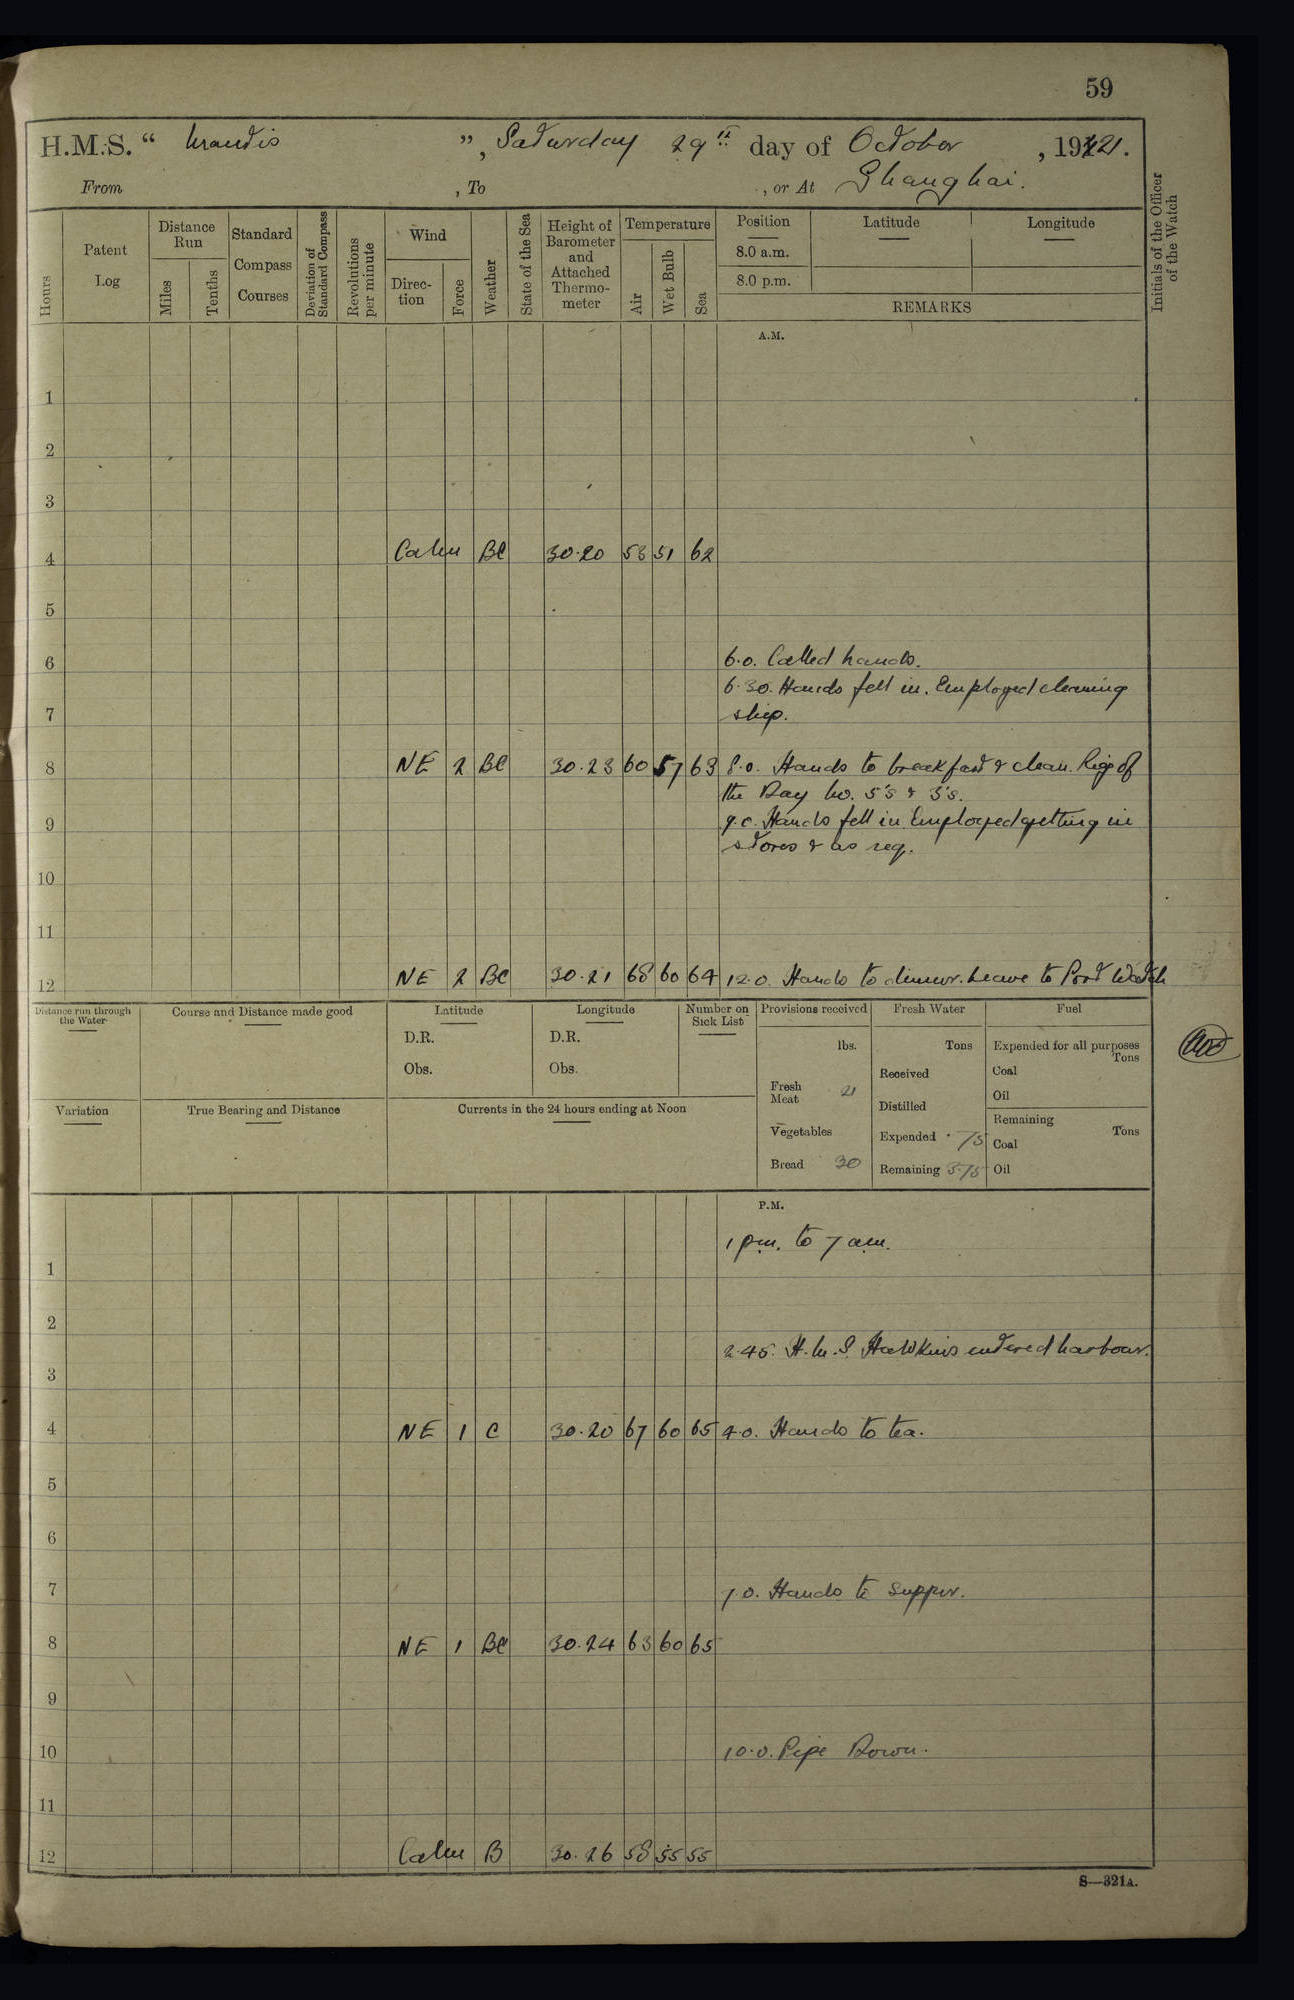 59
H.M.S. " Mantis ", Saturday 29th day of October, 1921.
From , To , or At Shanghai.
Hours
Patent Log
Distance Run
Miles
Tenths
Standard Compass Courses
Deviation of Standard Compass
Revolutions per minute
Wind
Direction
Force
Weather
State of the Sea
Height of Barometer and Attached Thermometer
Temperature
Air
Wet Bulb
Sea
Position
8.0 a.m.
8.0 p.m.
Latitude
Longitude
REMARKS
Initials of the Officer of the Watch
A.M.
1
2
3
4 Calm BC 30.20 53 51 62
5
6 6.0. Called hands.
6.30. Hands fell in. Employed cleaning
7 ship.
8 NE 2 BC 30.23 60 57 63 8.0. Hands to breakfast & clean. Rig of
the Day No. 5's & 3's.
9 9.0. Hands fell in. Employed getting in
stores & as req.
10
11
12 NE 2 BC 30.21 68 60 64 12.0. Hands to dinner. Leave to Port Watch
Distance run through the Water
Course and Distance made good
Latitude
D.R.
Obs.
Longitude
D.R.
Obs.
Number on Sick List
Provisions received
lbs.
Fresh Meat 21
Vegetables
Bread 30
Fresh Water
Tons
Received
Distilled
Expended .75
Remaining 3.75
Fuel
Expended for all purposes
Tons
Coal
Oil
Remaining
Tons
Coal
Oil
Variation
True Bearing and Distance
Currents in the 24 hours ending at Noon
P.M.
1 pm. to 7 am.
1
2
2.45. H.M.S. Hawkins entered harbour.
3
4 NE 1 C 30.20 67 60 65 4.0. Hands to tea.
5
6
7 7.0. Hands to supper.
8 NE 1 BC 30.24 63 60 65
9
10 10.0. Pipe Down.
11
12 Calm B 30.26 58 55 55
S—321A.